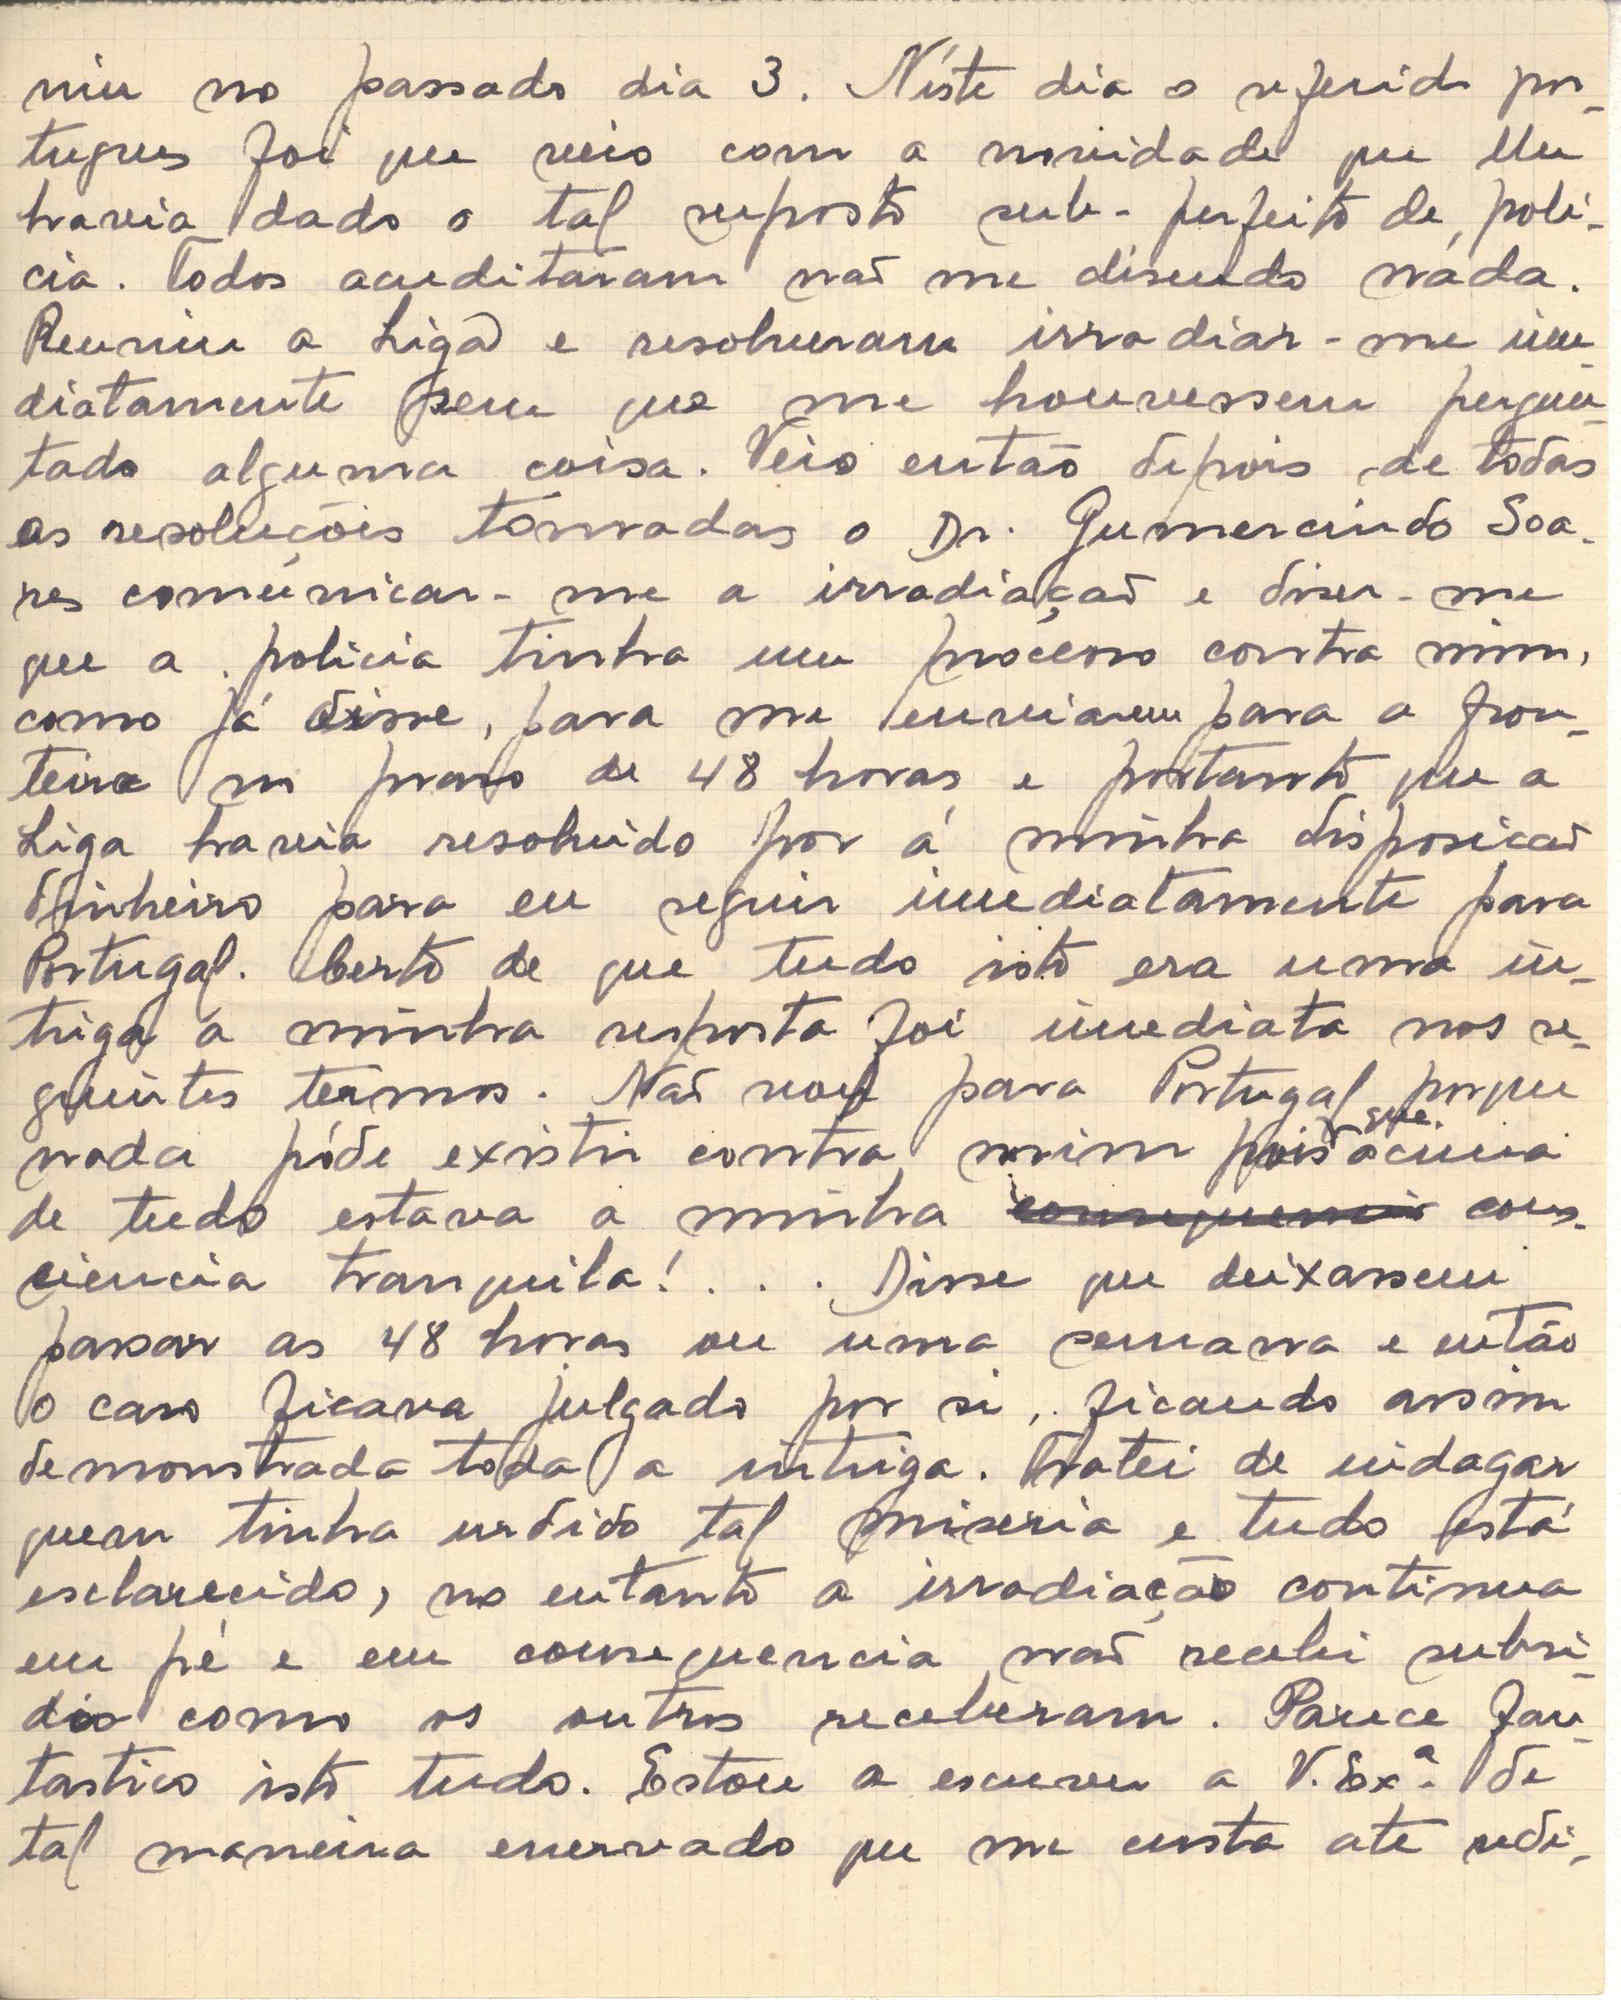 niu no passado dia 3. Nêste dia o referido por-
tugues foi que veio com a novidade que lhe
havia dado o tal suposto sub-perfeito de, polí-
cia. Todos acreditaram naõ me disendo nada.
Reuniu a Liga e resolveram irradiar-me ime-
diatamente sem que me houvessem pergun-
tado alguma coisa. Veio então depois de todas
as resoluçõis tomadas o Dr. Gumercindo Soa-
res comúnicar-me a irradiaçaõ e diser-me
que a policia tinha um procésso contra mim,
como já disse, para me enviarem para a fron-
teira no praso de 48 horas e portanto que a
Liga havia resolvido por á minha disposicaõ
dinheiro para eu seguir imediatamente para
Portugal. Certo de que tudo isto era uma in-
triga a minha resposta foi imediata nos se-
guintes termos. Naõ vou para Portugal porque
nada póde existir contra mim pois que acima
de tudo estava a minha consequencia cons-
ciencia tranquila! . . . Disse que deixassem
passar as 48 horas ou uma semana e então
o caso ficava julgado por si, ficando assim
demonstrada toda a intriga. Tratei de indagar
quem tinha urdido tal miseria e tudo está
esclarecido, no entanto a irradiação continua
em pé e em consequencia naõ recebi subsi-
dio como os outros receberam. Parece fan-
tastico isto tudo. Estou a escrever a V. Exª. de
tal maneira enervado que me custa ate redi-